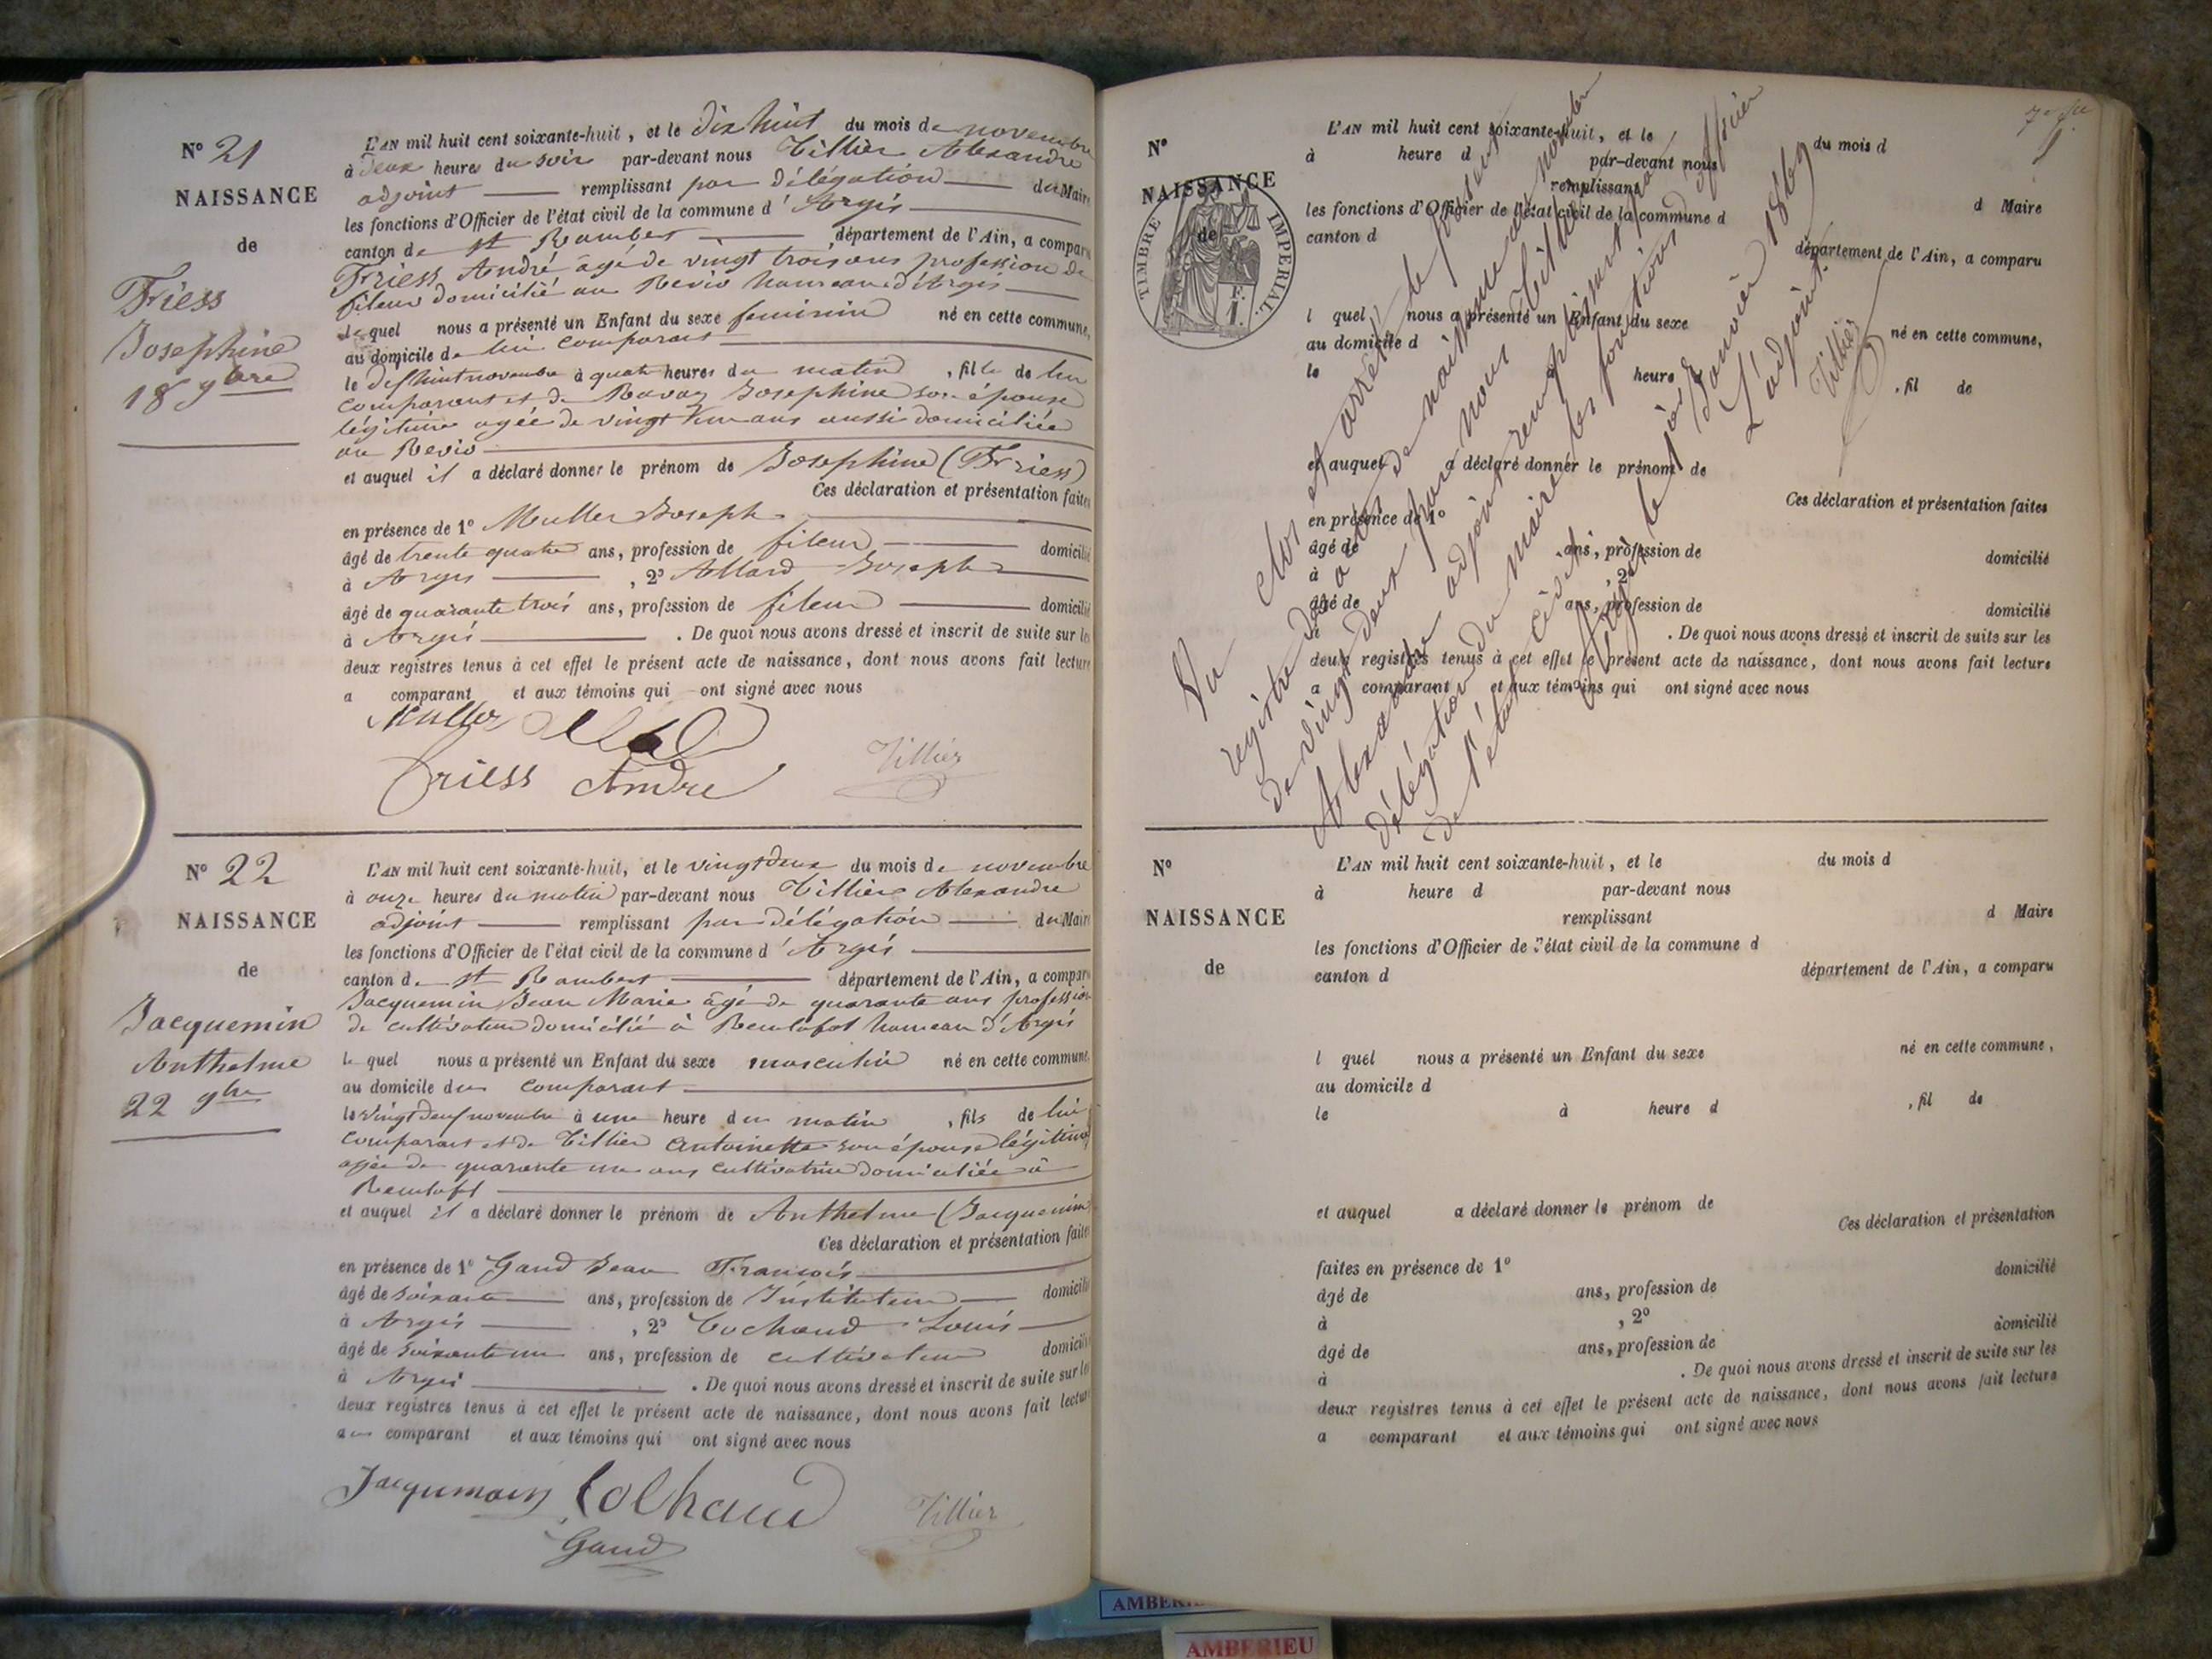 N° 21
NAISSANCE
de
Friess
Josephine
18 9bre
L'AN mil huit cent soixante-huit, et le dix huit du mois de novembre
à deux heures du soir par-devant nous Tillier Alexandre
adjoint remplissant par délégation du Maire
les fonctions d'Officier de l'état civil de la commune d'Argis
canton de St Rambert département de l'Ain, a comparu
Friess André âgé de vingt trois ans profession de
fileur domicilié au Revio hameau d'Argis
lequel nous a présenté un Enfant du sexe feminin né en cette commune,
au domicile de lui comparant
le dix huit novembre à quatre heures du matin, fille de lui
comparant et de Ravaz Josephine son épouse
légitime agée de vingt un ans aussi domiciliée
au Revio
et auquel il a déclaré donner le prénom de Josephine (Friess)
Ces déclaration et présentation faites
en présence de 1° Muller Joseph
âgé de trente quatre ans, profession de fileur domicilié
à Argis, 2° Allard Joseph
âgé de quarante trois ans, profession de fileur domicilié
à Argis. De quoi nous avons dressé et inscrit de suite sur les
deux registres tenus à cet effet le présent acte de naissance, dont nous avons fait lecture
a comparant et aux témoins qui ont signé avec nous
Muller
Friess André Tillier
N° 22
NAISSANCE
de
Jacquemin
Anthelme
22 9bre
L'AN mil huit cent soixante-huit, et le vingt deux du mois de novembre
à onze heures du matin par-devant nous Tillier Alexandre
adjoint remplissant par délégation du Maire
les fonctions d'Officier de l'état civil de la commune d'Argis
canton de St Rambert département de l'Ain, a comparu
Jacquemin Jean Marie âgé de quarante ans profession
de cultivateur domicilié à hameau d'Argis
lequel nous a présenté un Enfant du sexe masculin né en cette commune,
au domicile du comparant
le vingt deux novembre à une heure du matin, fils de lui
comparant et de Tillier Antoinette son épouse légitime
agée de quarante un ans cultivatrice domiciliée à
et auquel il a déclaré donner le prénom de Anthelme (Jacquemin)
Ces déclaration et présentation faites
en présence de 1° Gaud Jean François
âgé de soixante ans, profession de Instituteur domicilié
à Argis, 2° Cochaud Louis
âgé de soixante un ans, profession de cultivateur domicilié
à Argis. De quoi nous avons dressé et inscrit de suite sur les
deux registres tenus à cet effet le présent acte de naissance, dont nous avons fait lecture
au comparant et aux témoins qui ont signé avec nous
Jacquemain Colhaud Tillier
Gaud
N°
NAISSANCE
de
TIMBRE IMPÉRIAL
L'AN mil huit cent soixante-huit, et le du mois d
à heure d par-devant nous
remplissant d Maire
les fonctions d'Officier de l'état civil de la commune d
canton d département de l'Ain, a comparu
l quel nous a présenté un Enfant du sexe né en cette commune,
au domicile d
le à heure d , fil de
et auquel a déclaré donner le prénom de
Ces déclaration et présentation faites
en présence de 1°
âgé de ans, profession de domicilié
à , 2°
âgé de ans, profession de domicilié
à . De quoi nous avons dressé et inscrit de suite sur les
deux registres tenus à cet effet le présent acte de naissance, dont nous avons fait lecture
a comparant et aux témoins qui ont signé avec nous
Vu clos et arrêté le présent
registre des actes de naissance au nombre
de vingt deux par nous Tillier
Alexandre adjoint remplissant par
délégation du maire les fonctions d'officier
de l'état civil.
à Argis le 1er Janvier 1869
L'adjoint
Tillier
N°
NAISSANCE
de
L'AN mil huit cent soixante-huit, et le du mois d
à heure d par-devant nous
remplissant d Maire
les fonctions d'Officier de l'état civil de la commune d
canton d département de l'Ain, a comparu
l quel nous a présenté un Enfant du sexe né en cette commune,
au domicile d
le à heure d , fil de
et auquel a déclaré donner le prénom de
Ces déclaration et présentation
faites en présence de 1°
âgé de ans, profession de domicilié
à , 2°
âgé de ans, profession de domicilié
à . De quoi nous avons dressé et inscrit de suite sur les
deux registres tenus à cet effet le présent acte de naissance, dont nous avons fait lecture
a comparant et aux témoins qui ont signé avec nous
AMBERIEU